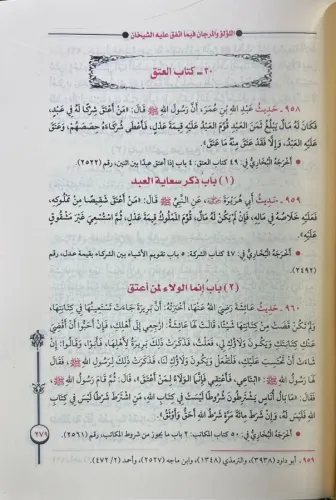 اللؤلؤ والمرجان فيما اتفق عليه الشيخان
٢٠- كتاب العتق
٩٥٨- حديث عَبْدِ اللهِ بْنِ عُمَرَ، أَنَّ رَسُولَ اللهِ ﷺ قَالَ: «مَنْ أَعْتَقَ شِرْكًا لَهُ فِي عَبْدٍ،
فَكَانَ لَهُ مَالٌ يَبْلُغُ ثَمَنَ الْعَبْدِ قُوِّمَ الْعَبْدُ عَلَيْهِ قِيمَةَ عَدْلٍ، فَأَعْطَى شُرَكَاءَهُ حِصَصَهُمْ، وَعَتَقَ
عَلَيْهِ الْعَبْدُ، وَإِلَّا فَقَدْ عَتَقَ مِنْهُ مَا عَتَقَ».
• أَخْرَجَهُ الْبُخَارِيُّ فِي: ٤٩ كتاب العتق: ٤ باب إذا أعتق عبدًا بين اثنين، رقم (٢٥٢٢).
(١) باب ذكر سعاية العبد
٩٥٩- حديث أَبِي هُرَيْرَةَ، عَنِ النَّبِيِّ ﷺ قَالَ: «مَنْ أَعْتَقَ شَقِيصًا مِنْ مَمْلُوكِهِ،
فَعَلَيْهِ خَلَاصُهُ فِي مَالِهِ، فَإِنْ لَمْ يَكُنْ لَهُ مَالٌ، قُوِّمَ الْمَمْلُوكُ قِيمَةَ عَدْلٍ، ثُمَّ اسْتُسْعِيَ غَيْرَ مَشْقُوقٍ
عَلَيْهِ».
• أَخْرَجَهُ الْبُخَارِيُّ فِي: ٤٧ كتاب الشركة: ٥ باب تقويم الأشياء بين الشركاء بقيمة عدل، رقم
(٢٤٩٢).
(٢) باب إنما الولاء لمن أعتق
٩٦٠- حديث عَائِشَةَ رَضِيَ اللهُ عَنْهَا، أَخْبَرَتْهُ: أَنَّ بَرِيرَةَ جَاءَتْ تَسْتَعِينُهَا فِي كِتَابَتِهَا،
وَلَمْ تَكُنْ قَضَتْ مِنْ كِتَابَتِهَا شَيْئًا، قَالَتْ لَهَا عَائِشَةُ: ارْجِعِي إِلَى أَهْلِكِ، فَإِنْ أَحَبُّوا أَنْ أَقْضِيَ
عَنْكِ كِتَابَتَكِ وَيَكُونَ وَلَاؤُكِ لِي، فَعَلْتُ. فَذَكَرَتْ ذَلِكَ بَرِيرَةُ لِأَهْلِهَا، فَأَبَوْا، وَقَالُوا: إِنْ
شَاءَتْ أَنْ تَحْتَسِبَ عَلَيْكِ، فَلْتَفْعَلْ، وَيَكُونَ وَلَاؤُكِ لَنَا، فَذَكَرَتْ ذَلِكَ لِرَسُولِ اللهِ ﷺ، فَقَالَ
لَهَا رَسُولُ اللهِ ﷺ: «ابْتَاعِي، فَأَعْتِقِي فَإِنَّمَا الْوَلَاءُ لِمَنْ أَعْتَقَ». قَالَ: ثُمَّ قَامَ رَسُولُ اللهِ ﷺ
فَقَالَ: «مَا بَالُ أُنَاسٍ يَشْتَرِطُونَ شُرُوطًا لَيْسَتْ فِي كِتَابِ اللهِ، مَنِ اشْتَرَطَ شَرْطًا لَيْسَ فِي كِتَابِ
اللهِ فَلَيْسَ لَهُ، وَإِنْ شَرَطَ مِائَةَ مَرَّةٍ شَرْطُ اللهِ أَحَقُّ وَأَوْثَقُ».
• أَخْرَجَهُ الْبُخَارِيُّ فِي: ٥٠ كتاب المكاتب: ٢ باب ما يجوز من شروط المكاتب، رقم (٢٥٦١).
٩٥٩- أبو داود (٣٩٣٨)، والترمذي (١٣٤٨)، وابن ماجه (٢٥٢٧)، وأحمد (٤٧٢/٢).
٢٧٩